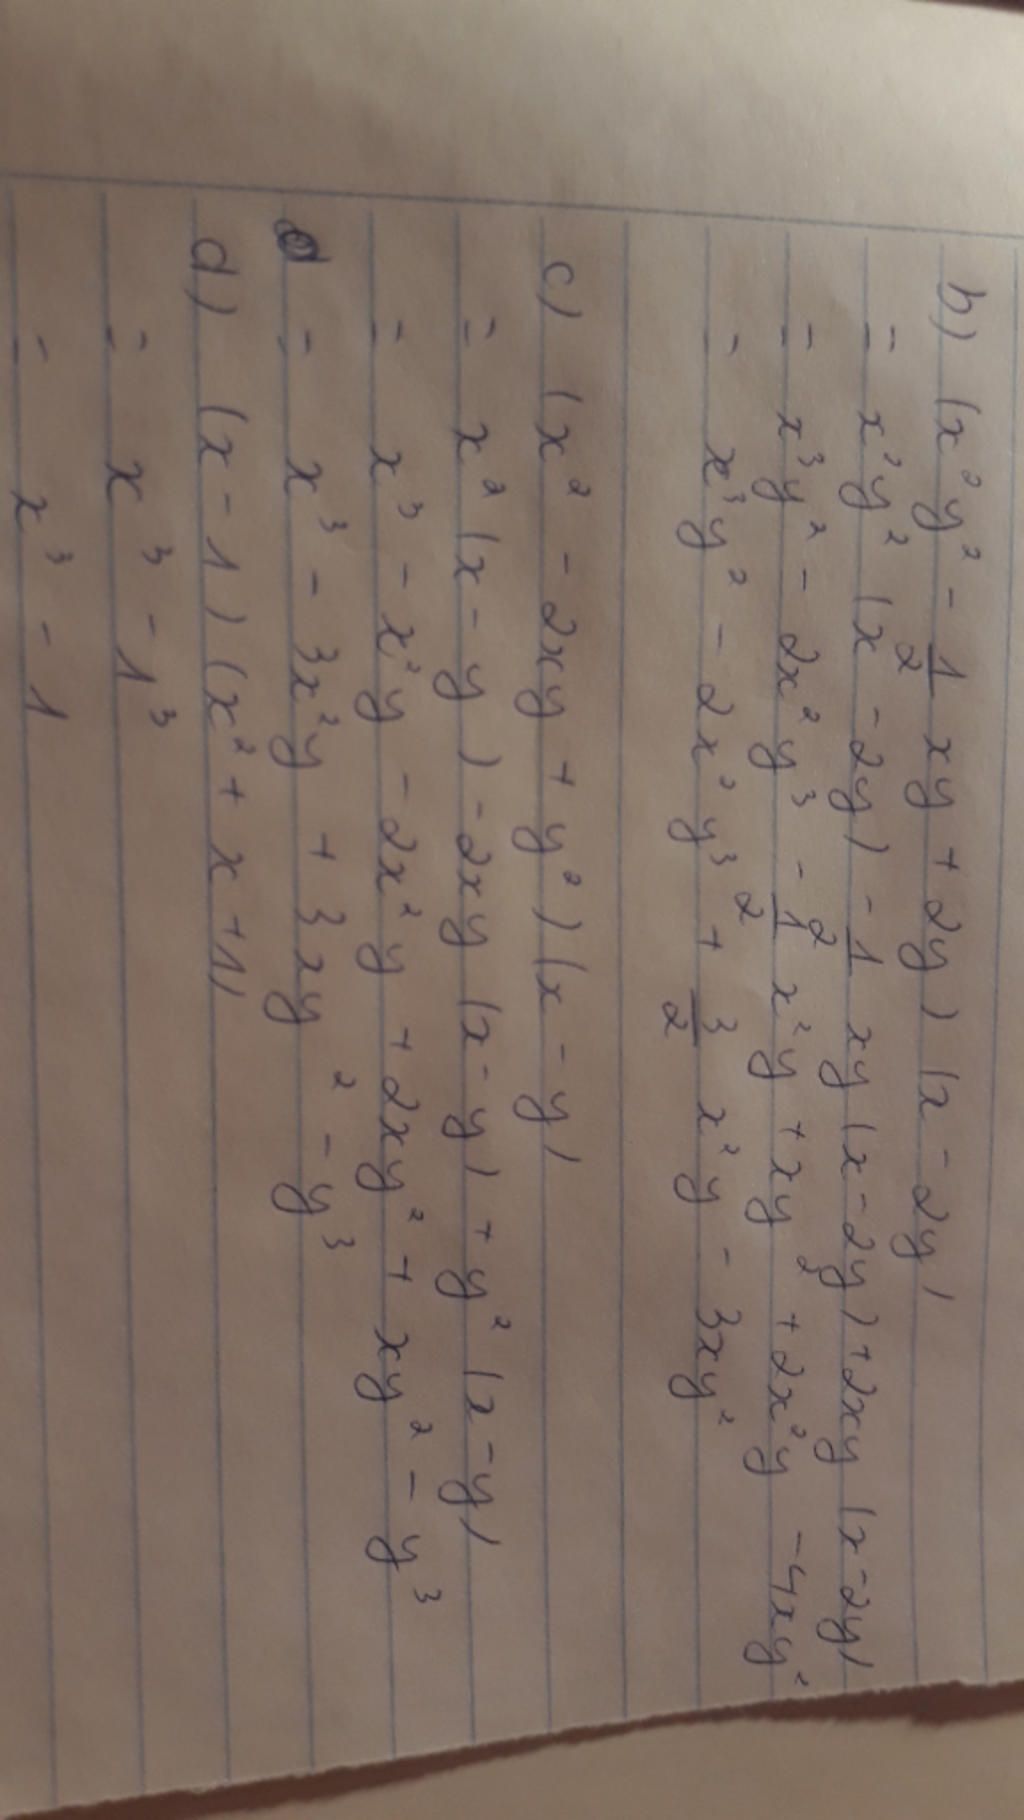 b) (x²y² - 1/2 xy + 2y) (x - 2y)
= x²y² (x - 2y) - 1/2 xy (x - 2y) + 2xy (x - 2y)
= x³y² - 2x²y³ - 1/2 x²y + xy² + 2x²y - 4xy²
= x³y² - 2x²y³ + 3/2 x²y - 3xy²
c) (x² - 2xy + y²) (x - y)
= x² (x - y) - 2xy (x - y) + y² (x - y)
= x³ - x²y - 2x²y + 2xy² + xy² - y³
= x³ - 3x²y + 3xy² - y³
d) (x - 1) (x² + x + 1)
= x³ - 1³
= x³ - 1